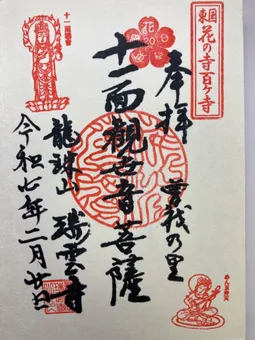 東国
花の寺百ヶ寺
奉拝
曽我の里
十一面観世音菩薩
龍珠山
瑞雲寺
令和七年二月廿日
十一面観音
花